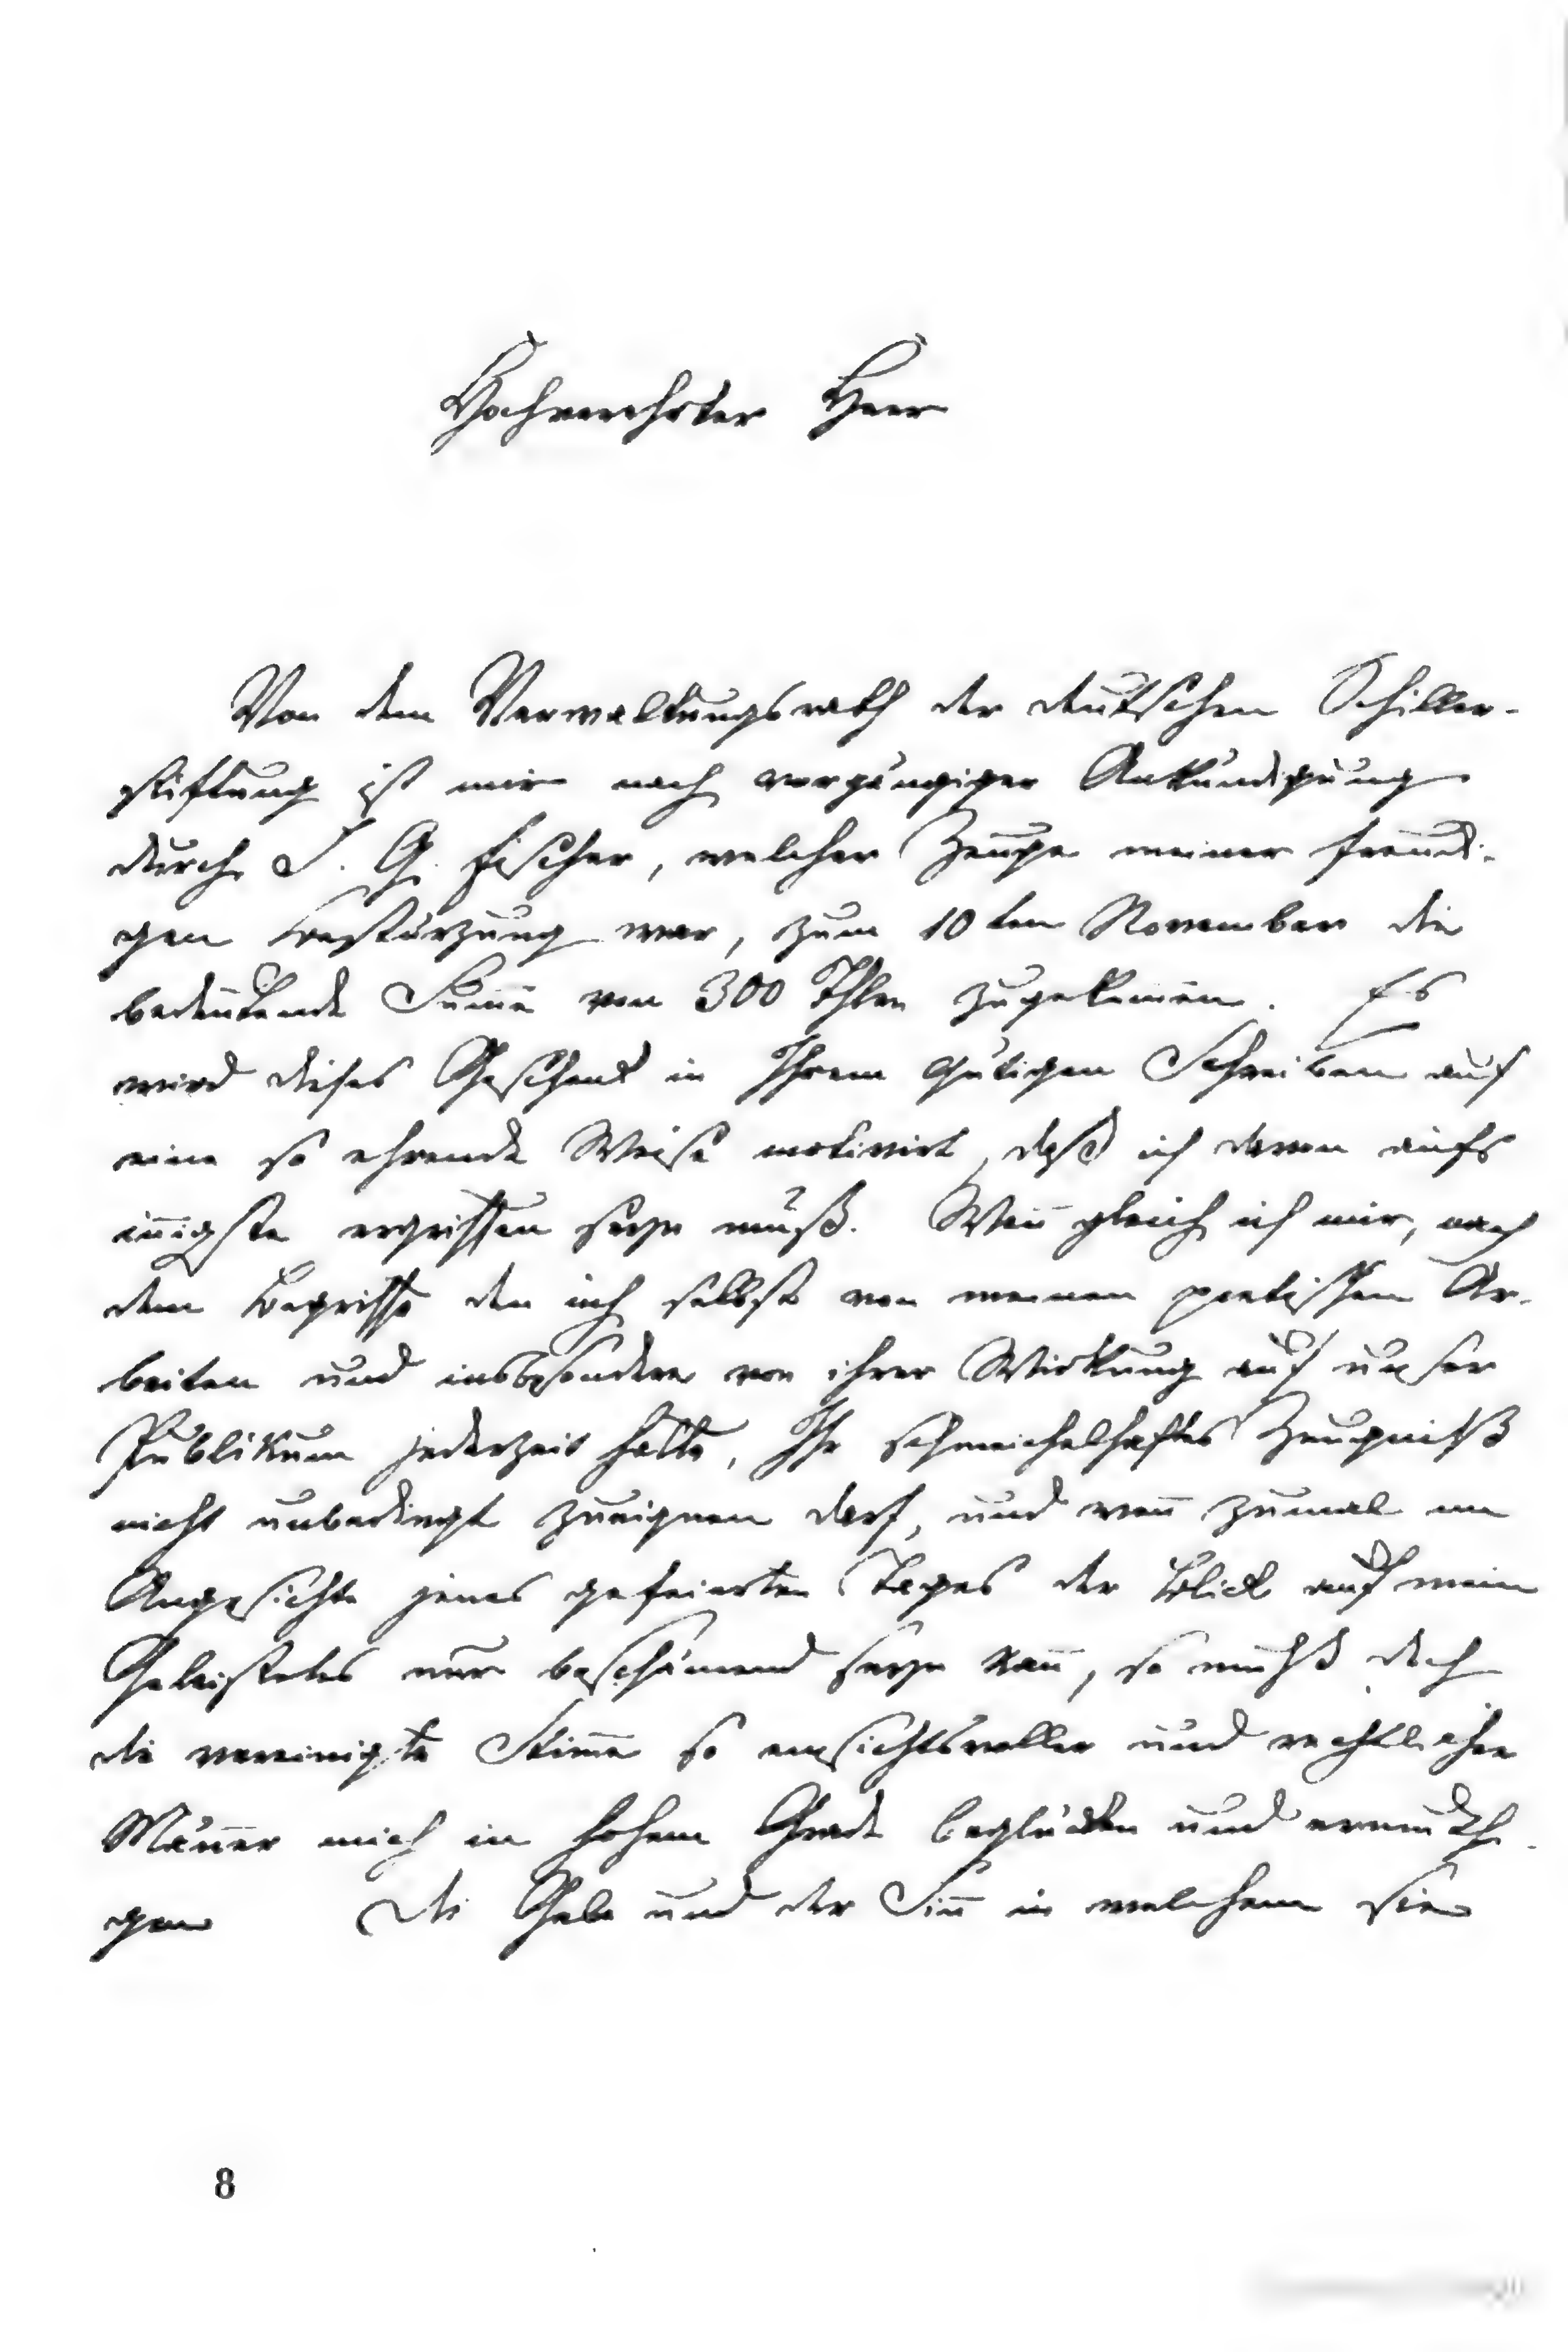 Hochverehrter Herr
Von dem Verwaltungsrath der deutschen Schiller-
stiftung ist mir nach vorgängiger Ankündigung
durch J. G. Fischer, welcher Zeuge meiner freudi-
gen Bestürzung war, zum 10ten November die
bedeutende Sum̄e von 300 Thlrn zugekom̄en. Es
wird dieses Geschenk in Ihrem gütigen Schreiben auf
eine so ehrende Weise motivirt, daß ich davon aufs
in̄igste ergriffen seyn muß. Wen̄ gleich ich mir, nach
dem Begriffe den ich selbst von meinen poetischen Ar-
beiten und insbesondere von ihrer Wirkung auf unser
Publikum jederzeit hatte, Ihr schmeichelhaftes Zeugniß
nicht unbedingt zueignen darf, und wen̄ zumal im
Angesichte jenes gefeierten Tages der Blick auf mein
Geleistetes nur beschämend seyn kan̄, so muß doch
die vereinigte Stim̄e so einsichtsvoller und rechtlicher
Män̄er mich in hohem Grade beglücken und ermuthi-
gen Die Gabe und der Sin̄ in welchem sie
8